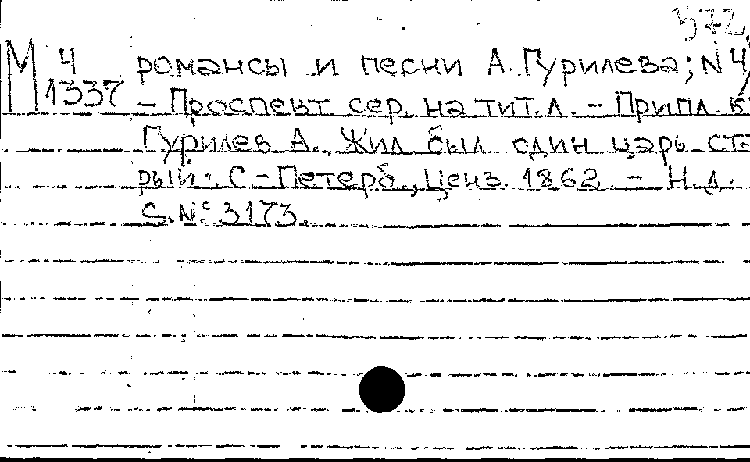 372
М 4 романсы и песни А. Гурилева; N 4,
1337 - Проспект сер. на тит. л. - Припл. к
Гурилев А. Жил был один царь ста-
рый. С.-Петерб., Ценз. 1862. - Н.д.
S. № 3173.